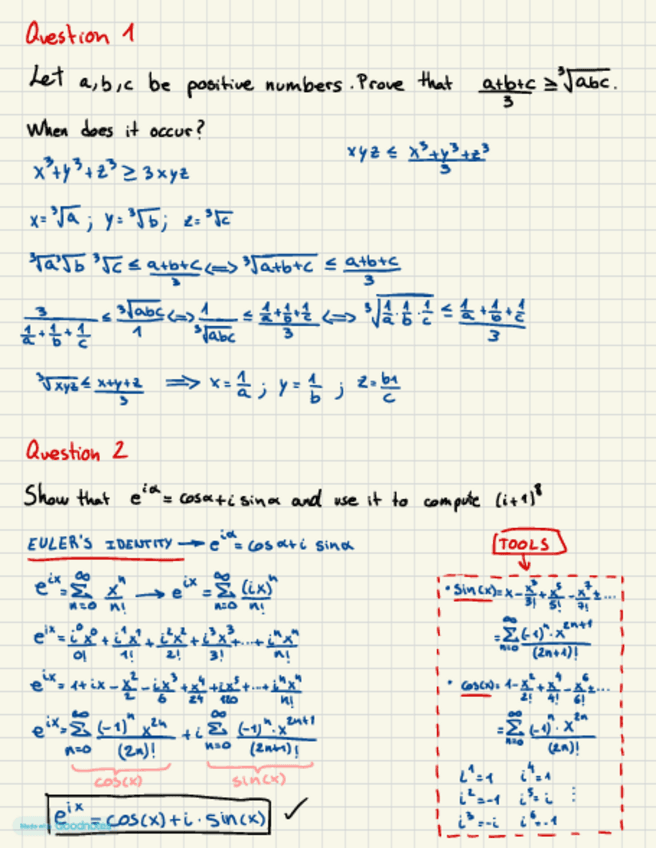 Question 1
Let a,b,c be positive numbers. Prove that (a+b+c)/3 ≥ ∛(abc).
When does it occur?
x³+y³+z³ ≥ 3xyz
xyz ≤ (x³+y³+z³)/3
x=∛a ; y=∛b ; z=∛c
∛a ∛b ∛c ≤ (a+b+c)/3 <=> ∛(a+b+c) ≤ (a+b+c)/3
3/(1/a+1/b+1/c) ≤ ∛(abc)/1 <=> 1/∛(abc) ≤ (1/a+1/b+1/c)/3 <=> ∛(1/a·1/b·1/c) ≤ (1/a+1/b+1/c)/3
∛(xyz) ≤ (x+y+z)/3 ⟹ x=1/a ; y=1/b ; z=b1/c
Question 2
Show that e^(iα) = cosα+i sinα and use it to compute (i+1)⁸
EULER'S IDENTITY → e^(iα) = cosα+i sinα
e^(ix) = ∑_(n=0)^∞ x^n/n! → e^(ix) = ∑_(n=0)^∞ (ix)^n/n!
e^(ix) = i⁰x⁰/0! + i¹x¹/1! + i²x²/2! + i³x³/3! + ... + i^n x^n/n!
e^(ix) = 1+ix - x²/2 - ix³/6 + x⁴/24 + ix⁵/120 + ... + i^n x^n/n!
e^(ix) = ∑_(n=0)^∞ (-1)^n x^(2n)/(2n)! + i ∑_(n=0)^∞ (-1)^n · x^(2n+1)/(2n+1)!
cos(x) sin(x)
e^(ix) = cos(x)+i·sin(x) ✓
TOOLS
• sin(x) = x - x³/3! + x⁵/5! - x⁷/7! ± ...
= ∑_(n=0)^∞ (-1)^n · x^(2n+1)/(2n+1)!
• cos(x) = 1 - x²/2! + x⁴/4! - x⁶/6! ± ...
= ∑_(n=0)^∞ (-1)^n · x^(2n)/(2n)!
i¹=1 i⁴=1
i²=-1 i⁵=i ⋮
i³=-i i⁶=-1
Made with Goodnotes